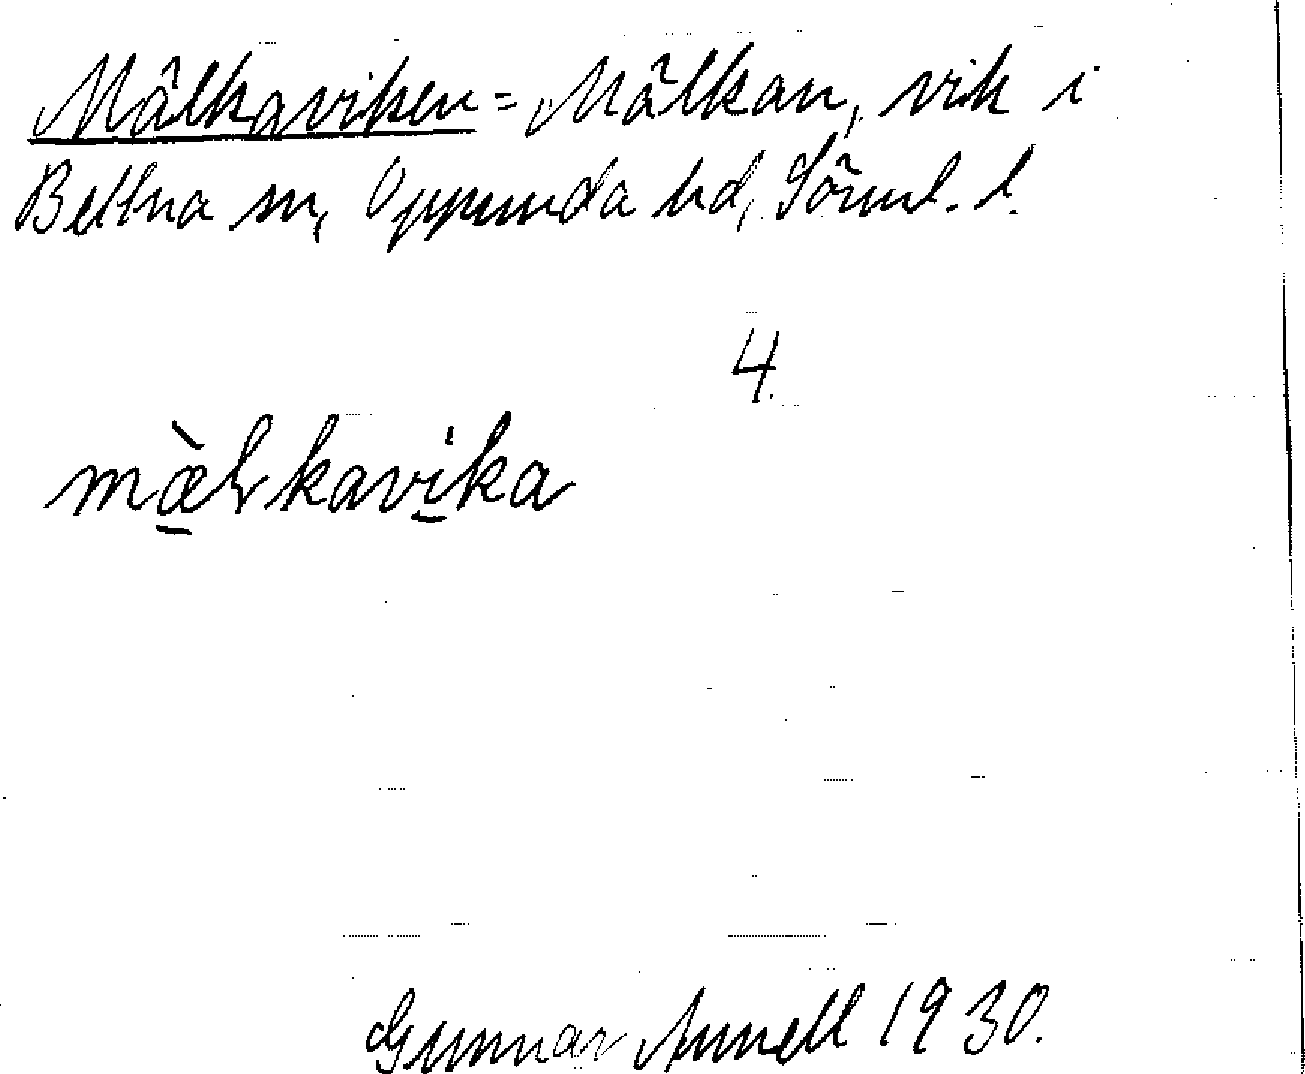 Mälkaviken = Mälkan, vik i
Bettna sn, Oppunda hd, Söml. l.
4.
mæ̀lkavika
Gunnar Annell 1930.